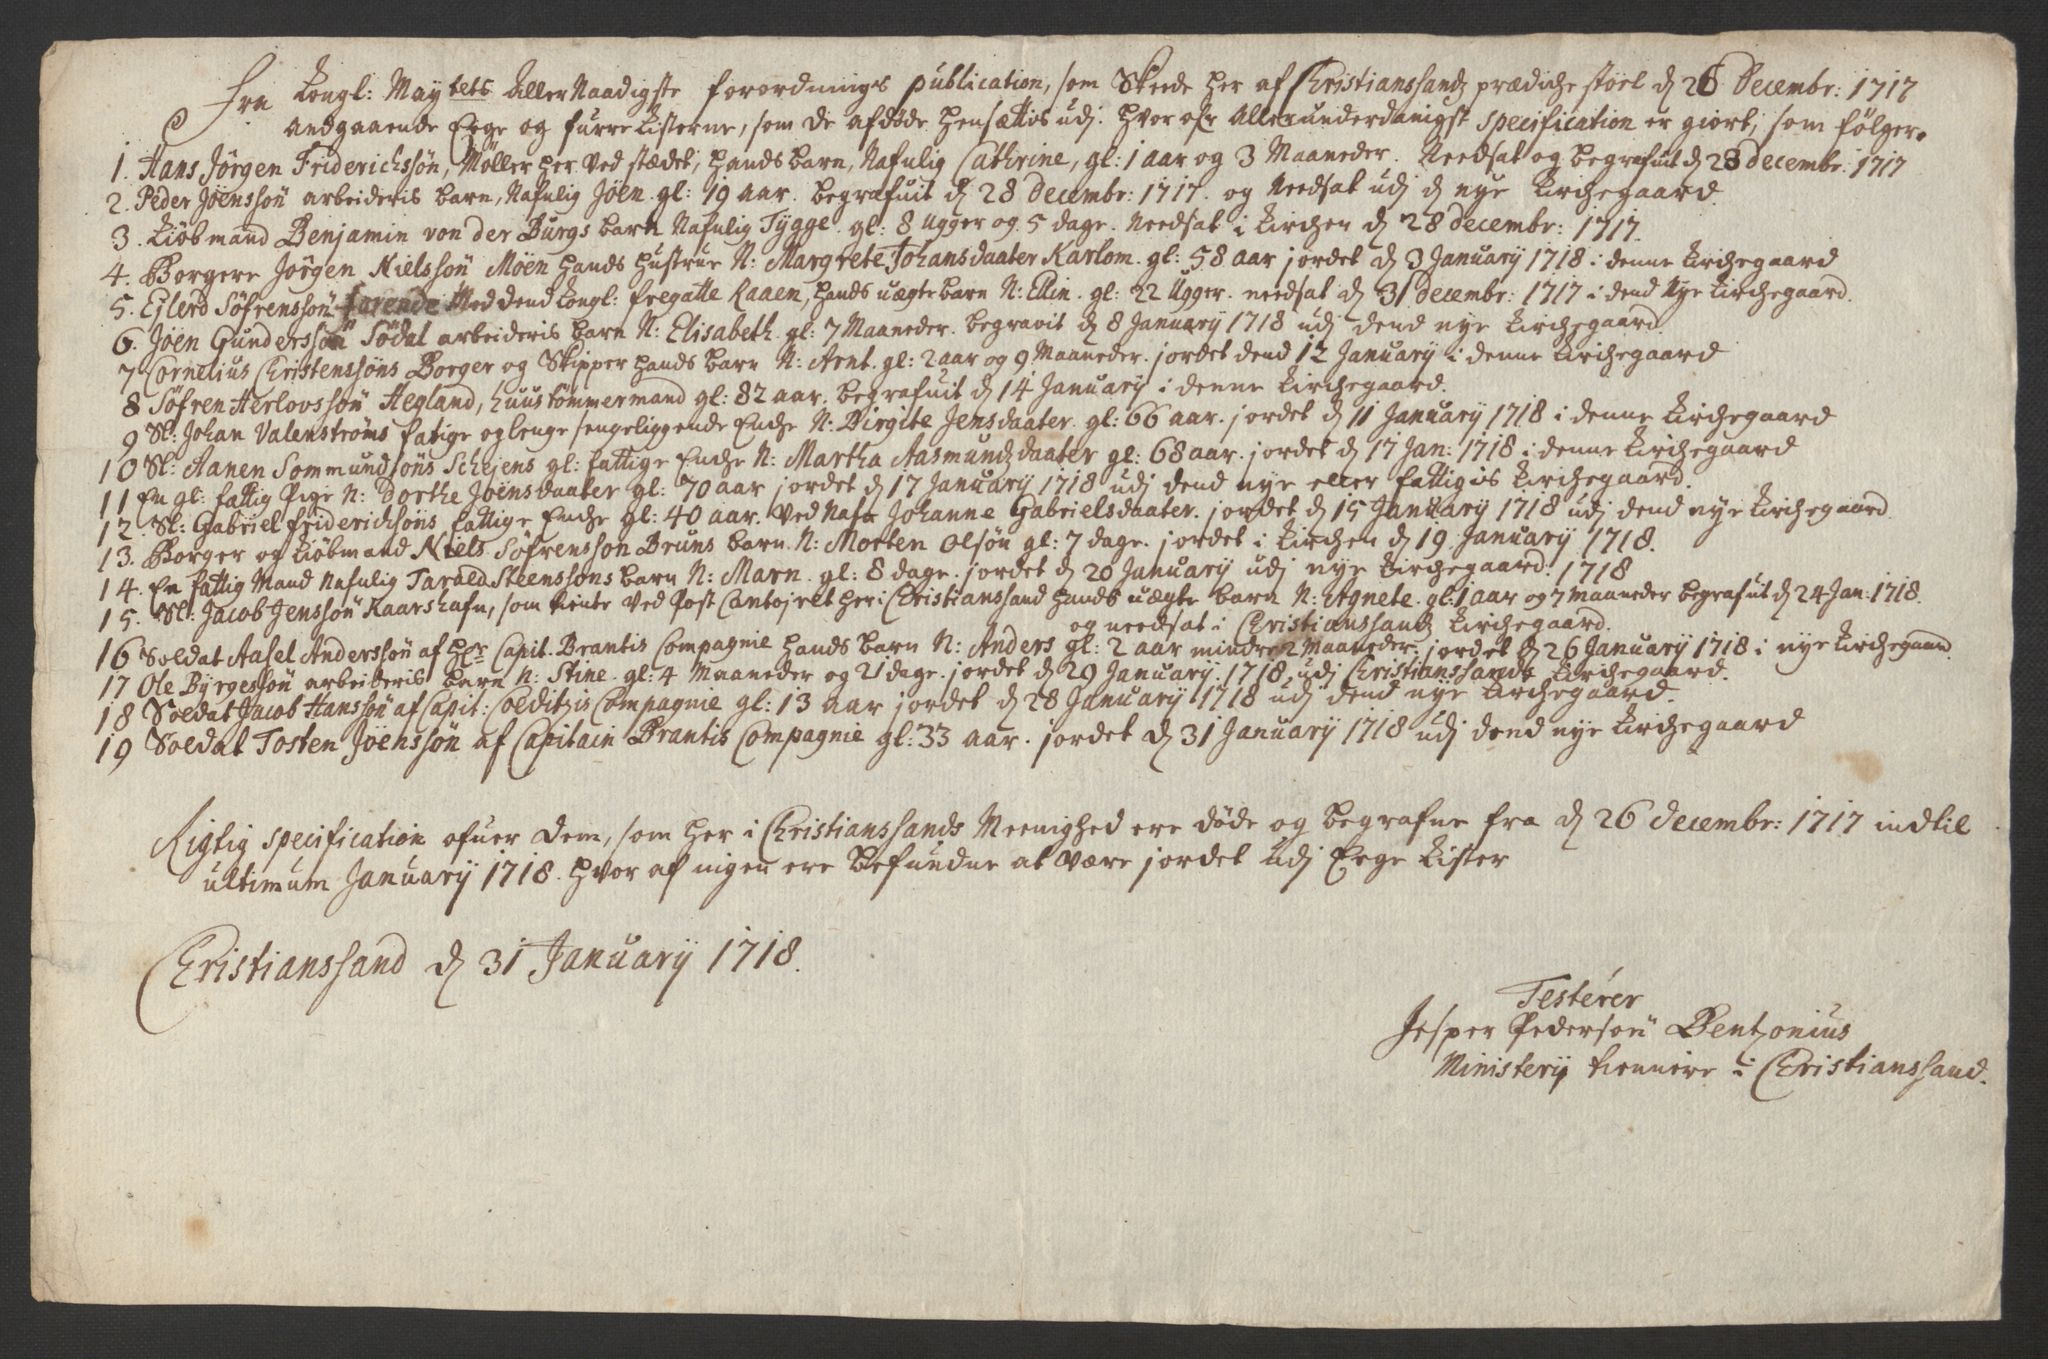 Fra Kongl: Maytets Aller Naadigste forordnings publication, som Skeede her af Christianssandz prædiche stoel d 26 Decembr: 1717
andgaaende Eege og furre Kisterne, som de afdøde hensættis udj: hvor ofr Allerunderdanigst specification er giort, som følger.
1. Hans Jørgen Friderichssøn, Møller her ved stædet, hands barn, Nafnlig Cathrine, gl: 1 aar og 3 Maaneder. Needsat og begrafuit d 28 decembr: 1717
2. Peder Joenssøn arbeideris barn, Nafnlig Joen. gl: 19 aar. begrafuit d 28 decembr: 1717. og Needsat udj d nye Kirchegaard.
3. Kiøbmand Benjamin von der Burgs barn Nafnlig Tygge. gl: 8 Ugger og 5 dage. Needsat i Kirchen d 28 decembr: 1717.
4. Borgere Jørgen Nielssøn Moen hands hustrue N: Margrete Johansdaater Karlom. gl: 58 aar jordet d 3 January 1718 i denne Kirchegaard
5. Ejlerd Søfrenssøn farende Med dend Kongl: fregatte Raaen, hands uægte barn N: Ellin. gl: 22 Ugger. needsat d 31 decembr: 1717 i dend Nye Kirchegaard.
6. Joen Gunderssøn Sødal arbeideris barn N: Elisabeth. gl: 7 Maaneder. begravit d 8 January 1718 udj dend nye Kirchegaard.
7 Cornelius Christenssøns Borger og Skipper hands barn N: Arnt. gl: 2 aar og 9 Maaneder. jordet dend 12 January i denne Kirchegaard
8 Søfren Herlovssøn Hegland, huustømmermand gl: 82 aar. begrafuit d 14 January i denne Kirchegaard.
9 Sl: Johan Valenstrøms fatige og lenge sengeliggende Enche N: Birgite Jensdaater. gl: 66 aar. jordet d 11 January 1718 i denne Kirchegaard
10 Sl: Aanen Sommundsøns Schejens gl: fattige Enche N: Martha Aasmundzdaater gl: 68 aar. jordet d 17 Jan: 1718 i denne Kirchegaard
11 En gl: fattig Pige N: Dorthe Joensdaater gl: 70 aar jordet d 17 January 1718 udj dend nye eller fattigis Kirchegaard.
12. Sl: Gabriel friderichsøns fattige Enche gl: 40 aar. ved Nafn Johanne Gabrielsdaater. jordet d 15 January 1718 udj dend nye Kirchegaard
13. Borger og Kiøbmand Niels Søfrensson Bruns barn. N: Morten Olsøn gl: 7 dage. jordet i Kirchen d 19 January 1718.
14. En fattig Mand Nafnlig Tarald Steenssøns barn N: Marn. gl: 8 dage. jordet d 20 January udj nye Kirchegaard. 1718
15. Sl: Jacob Jenssøn Kaarshafn, som tiente ved Post Contojret her i Christianssand hands uægte barn N: Agnete. gl: 1 aar og 7 maaneder begrafut d 24 Jan: 1718.
og needsat i Christianssandz Kirchegaard.
16 Soldat Aasel Anderssøn af hr Capit. Brantis Compagnie hands barn N: Anders gl: 2 aar mindre 2 Maaneder. jordet d 26 January 1718 i nye Kirchegaard.
17 Ole Byrgessøn arbeideris barn N: Stine. gl: 4 Maaneder og 21 dage. jordet d 29 January 1718, udj Christianssands Kirchegaard.
18 Soldat Jacob Hanssøn af Capit: Colditzis Compagnie gl: 13 aar jordet d 28 January 1718 udj dend nye Kirchegaard.
19 Soldat Tosten Joenssøn af Capitain Brantis Compagnie gl: 33 aar. jordet d 31 January 1718 udj dend nye Kirchegaard
Rigtig specification ofuer dem, som her i Christianssands Meenighed ere døde og begrafne fra d 26 decembr: 1717 indtil
ultimum January 1718. hvor af ingen ere befundne at være jordet udj Eege Kister
Christianssand d 31 January 1718.
Testérer
Jesper Pedersøn Bentzonius
Ministerij tiennere i Christianssand.